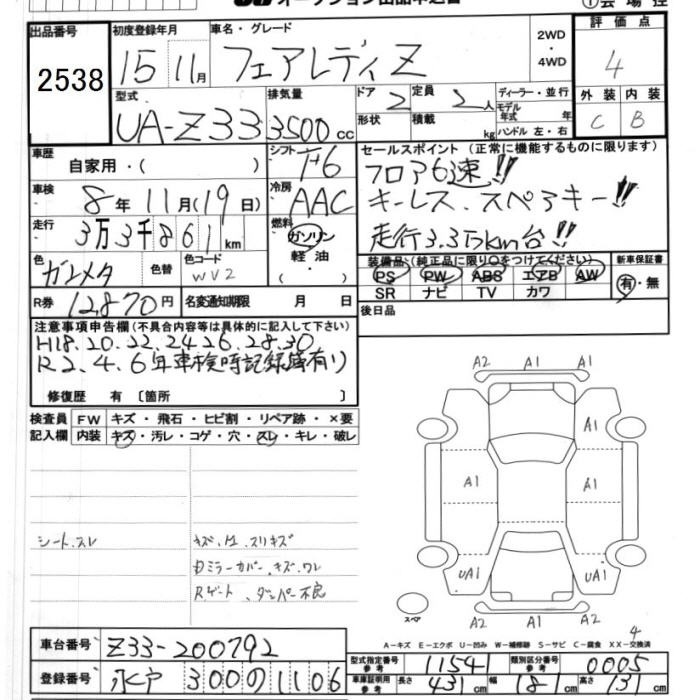 オークション出品申込書
①会場控
出品番号 2538
初度登録年月 15 11月
車名・グレード フェアレディZ
2WD・4WD
評価点 4
型式 UA-Z33
排気量 3500cc
ドア 2 形状
定員 2人 積載 kg
ディーラー・並行
モデル年式 年
ハンドル 左・右
外装 C 内装 B
車歴 自家用・( )
シフト F6
セールスポイント (正常に機能するものに限ります)
フロア6速!!
車検 8年11月(19日)
冷房 AAC
キーレス、スペアキー!!
走行 3万3千861km
燃料 ガソリン 軽油・
走行3.3万km台!!
色 ガンメタ 色替
色コード WV2
装備品 (純正品に限り○をつけてください)
PS PW ABS エアB AW
SR ナビ TV カワ
新車保証書 有・無
R券 12,870円
名変通知期限 月 日
後日品
注意事項申告欄 (不具合内容等は具体的に記入して下さい)
H18.20.22.24.26.28.30
R2.4.6年車検時記録簿有り
修復歴 有 〔箇所 〕
検査員記入欄
FW キズ・飛石・ヒビ割・リペア跡・×要
内装 キズ・汚レ・コゲ・穴・スレ・キレ・破レ
シート、スレ
スリキズ
ミラーカバー、キズ、ワレ
Rゲート、ダンパー不良
A2 A1 A1 A2
A1
A1 A1
UA1 UA1
A2 A1 A2
スペア
4
A-キズ E-エクボ U-凹み W-補修跡 S-サビ C-腐食 XX-交換済
車台番号 Z33-200792
登録番号 水戸 300の1106
型式指定番号 参考 11541
類別区分番号 参考 0005
車庫証明用 参考 長さ 431cm 幅 181cm 高さ 131cm